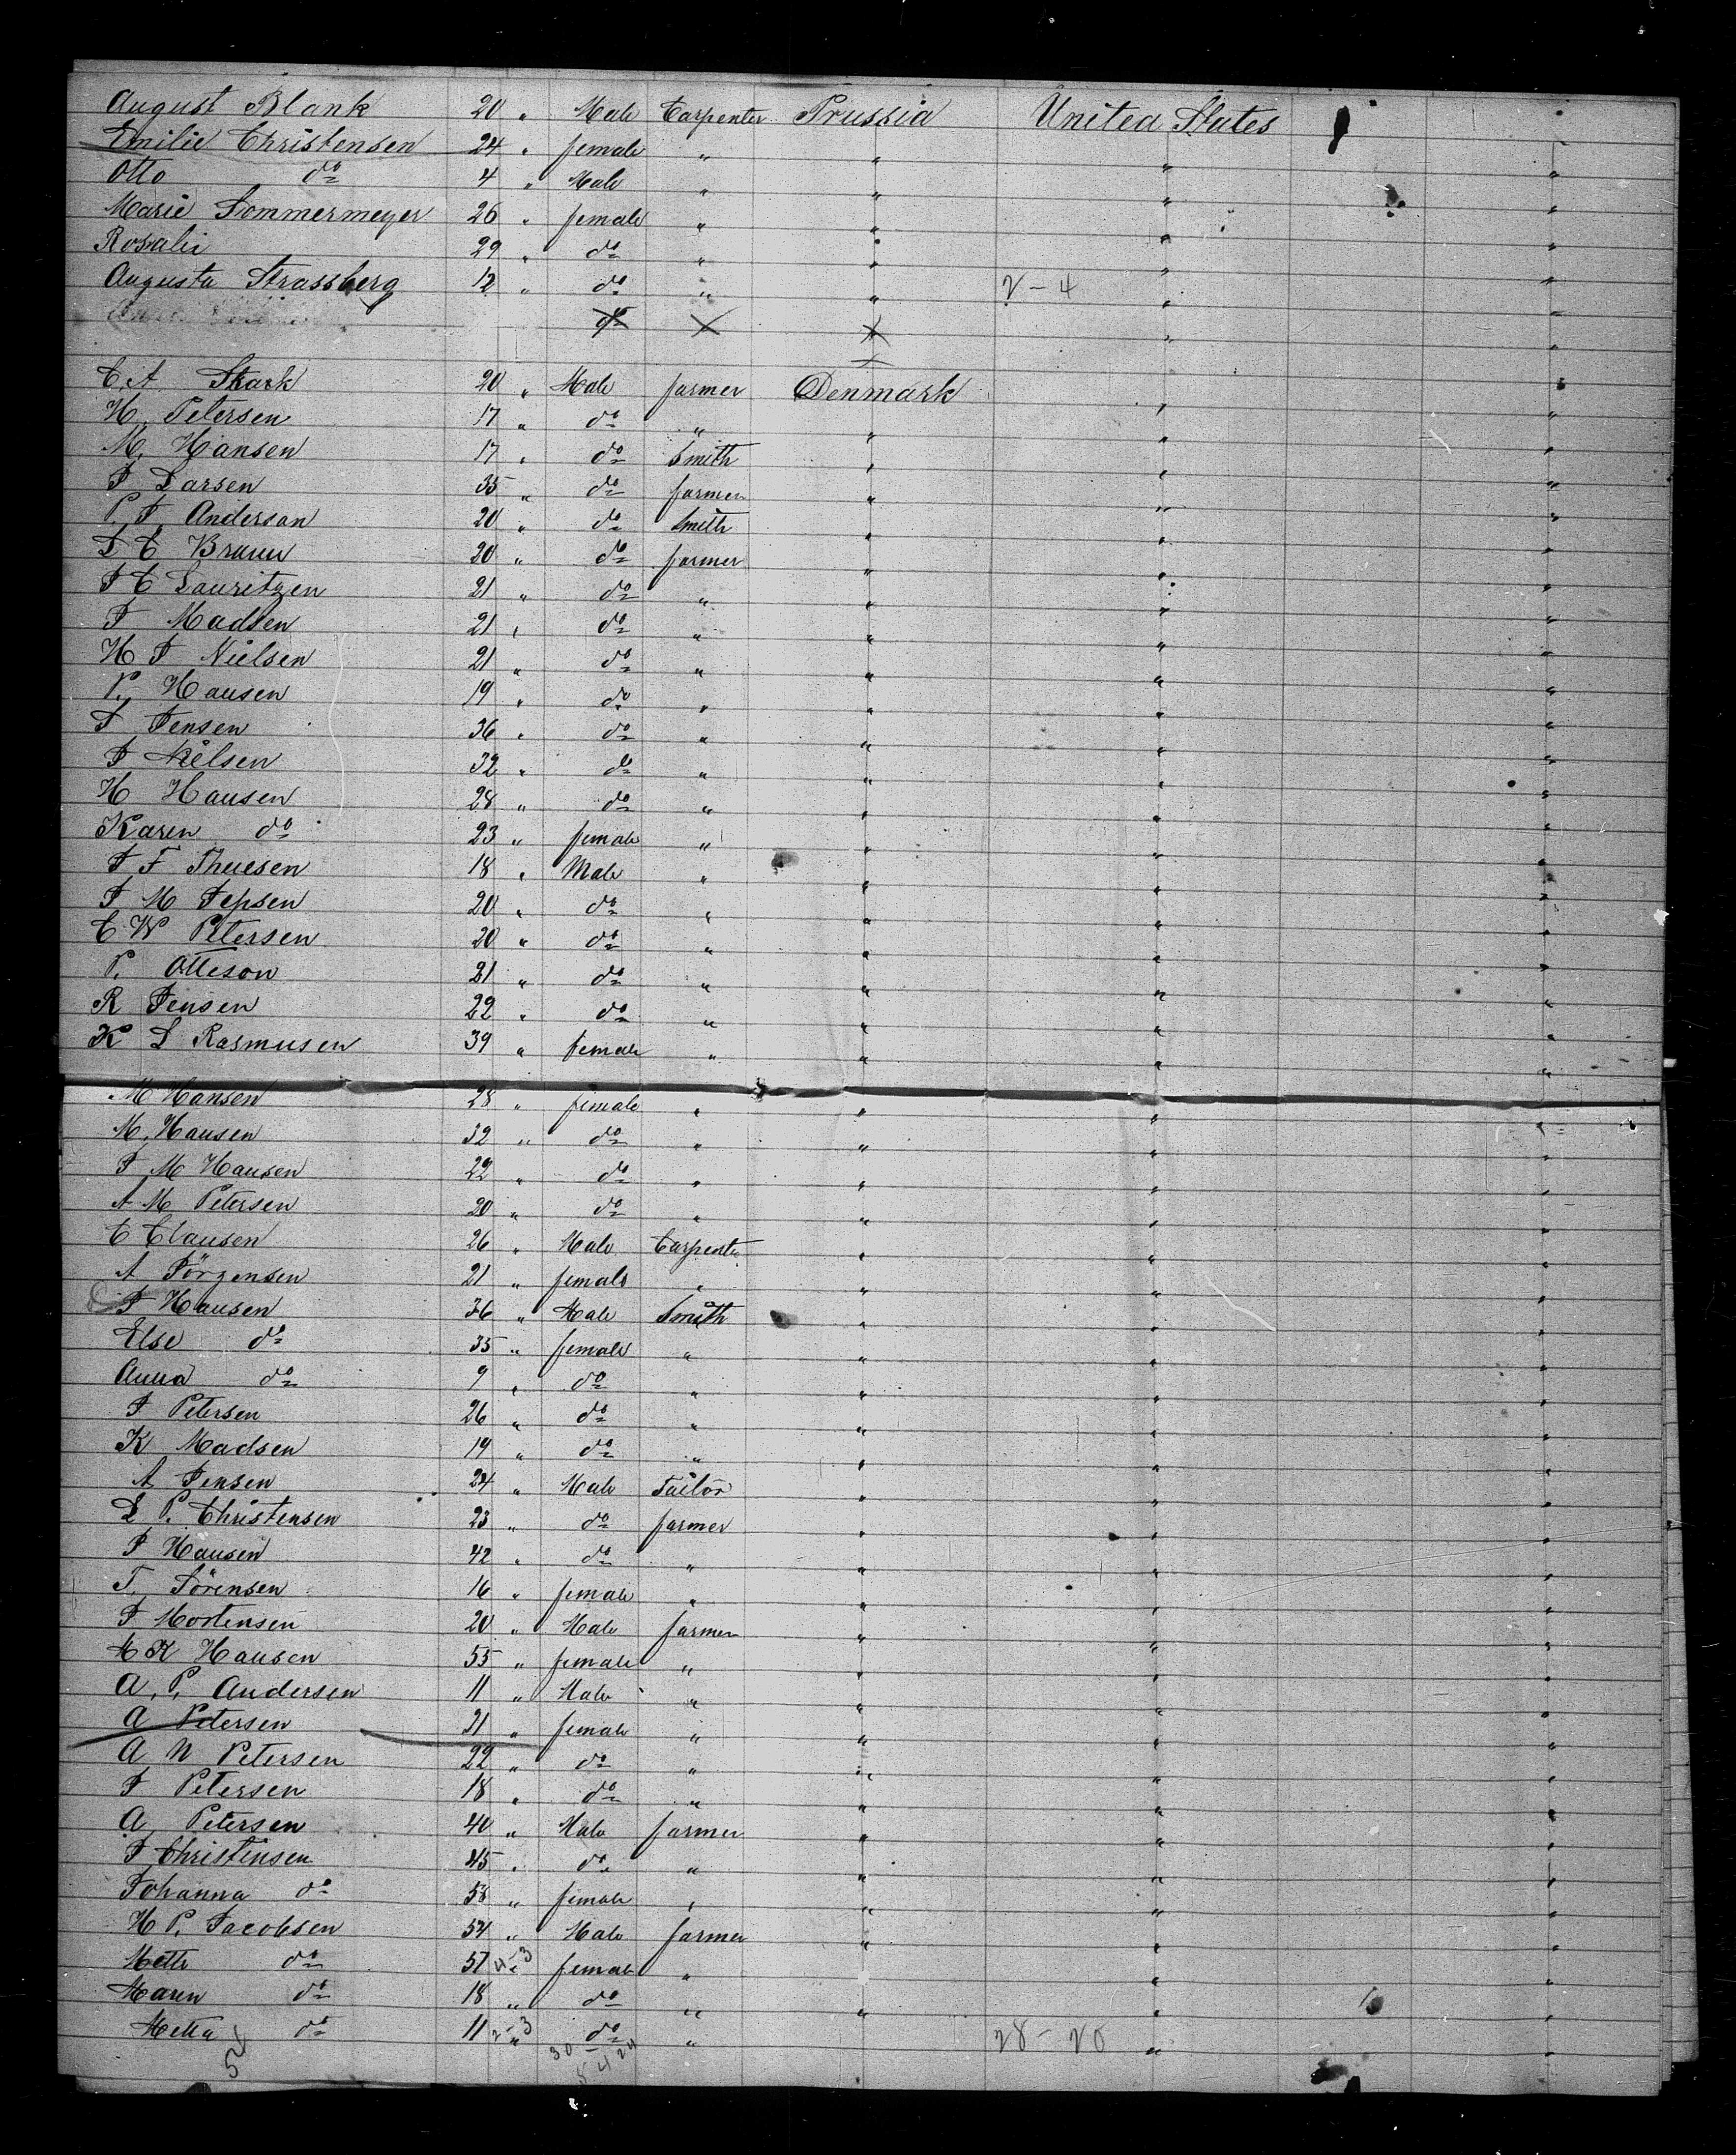 August Blank 20 " Male Carpenter Prussia United States 1
Emilie Christensen 24 " female " " " "
Otto do 4 " Male " " " "
Marie Sommermeyer 26 " female " " " "
Rosalie 29 " do " " " "
Augusta Strassberg 12 " do " " 2-4 " "
do " "
C. A Skark 20 " Male farmer Denmark " "
H. Petersen 17 " do " " " "
M. Hansen 17 " do Smith " " "
J Larsen 35 " do farmer " " "
P. J. Anderson 20 " do Smith " " "
L C Bruun 20 " do farmer " " "
J C Lauritzen 21 " do " " " "
J Madsen 21 " do " " " "
H J Nielsen 21 " do " " " "
P. Hansen 19 " do " " " "
J Jensen 36 " do " " " "
J Nielsen 32 " do " " " "
H Hansen 28 " do " " " "
Karen do 23 " female " " " "
J F Thuesen 18 " Male " " " "
J M Jepsen 20 " do " " " "
C W Petersen 20 " do " " " "
P. Otteson 21 " do " " " "
R Jensen 22 " do " " " "
K L Rasmusen 39 " female " " " "
M Hansen 28 " female " " " "
M. Hansen 32 " do " " " "
J M Hansen 22 " do " " " "
A M Petersen 20 " do " " " "
C Clausen 26 " Male Carpenter " " "
A Jörgensen 21 " female " " " "
J Hansen 36 " Male Smith " " "
Else do 35 " female " " " "
Anna do 9 " do " " " "
J Petersen 26 " do " " " "
K Madsen 19 " do " " " "
A Jensen 24 " Male Tailor " " "
L P. Christensen 23 " do farmer " " "
J Hansen 42 " do " " " "
T. Sörensen 16 " female " " " "
J Mortensen 20 " Male farmer " " "
M K Hansen 55 " female " " " "
A. P. Andersen 11 " Male " " " "
A Petersen 21 " female " " " "
A N Petersen 22 " do " " " "
J Petersen 18 " do " " " "
A. Petersen 40 " Male farmer " " "
J Christensen 45 " do " " " "
Johanna do 58 " female " " " "
H P. Jacobsen 54 " Male farmer " " "
Mette do 57 4-3 " female " " " "
Maren do 18 " do " " " "
Metta do 11 2-3 " do " 28-20 " "
5 30 24
5 4